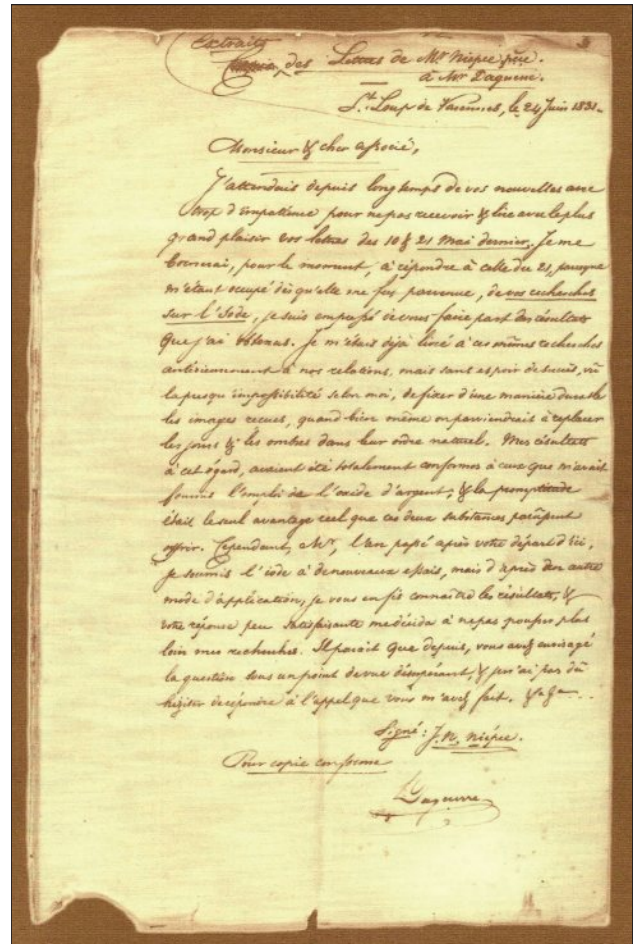 Extraits
des Lettres de Mr Niépce père.
à Mr Daguerre.
St Loup de Varennes, le 24 Juin 1831.
Monsieur & cher associé,
J'attendais depuis long temps de vos nouvelles avec
trop d'impatience pour ne pas recevoir & lire avec le plus
grand plaisir vos lettres des 10 & 21 Mai dernier. Je me
bornerai, pour le moment, à répondre à celle du 21, parceque
m'étant occupé dès qu'elle me fus parvenue, de vos recherches
sur l'Iode, je suis empressé de vous faire part des résultats
que j'ai obtenus. Je m'étais déjà livré à ces mêmes recherches
antérieurement à nos relations, mais sans espoir de succès, vu
la presqu'impossibilité selon moi, de fixer d'une manière durable
les images reçues, quand bien même on parviendrait à replacer
les jours & les ombres dans leur ordre naturel. Mes résultats
à cet égard, avaient été totalement conformes à ceux que m'avait
fournis l'emploi de l'oxide d'argent; & la promptitude
était le seul avantage réel que ces deux substances parussent
offrir. Cependant, Mr, l'an passé après votre départ d'ici,
je soumis l'iode à de nouveaux essais, mais d'après un autre
mode d'application; je vous en fis connaître les résultats, &
votre réponse peu satisfaisante me décida à ne pas pousser plus
loin mes recherches. Il paraît que depuis, vous avez envisagé
la question sous un point de vue désespérant, & je n'ai pas dû
hésiter de répondre à l'appel que vous m'avez fait. &a &a - - -
Signé: J. N. Niépce.
Pour copie conforme
Daguerre